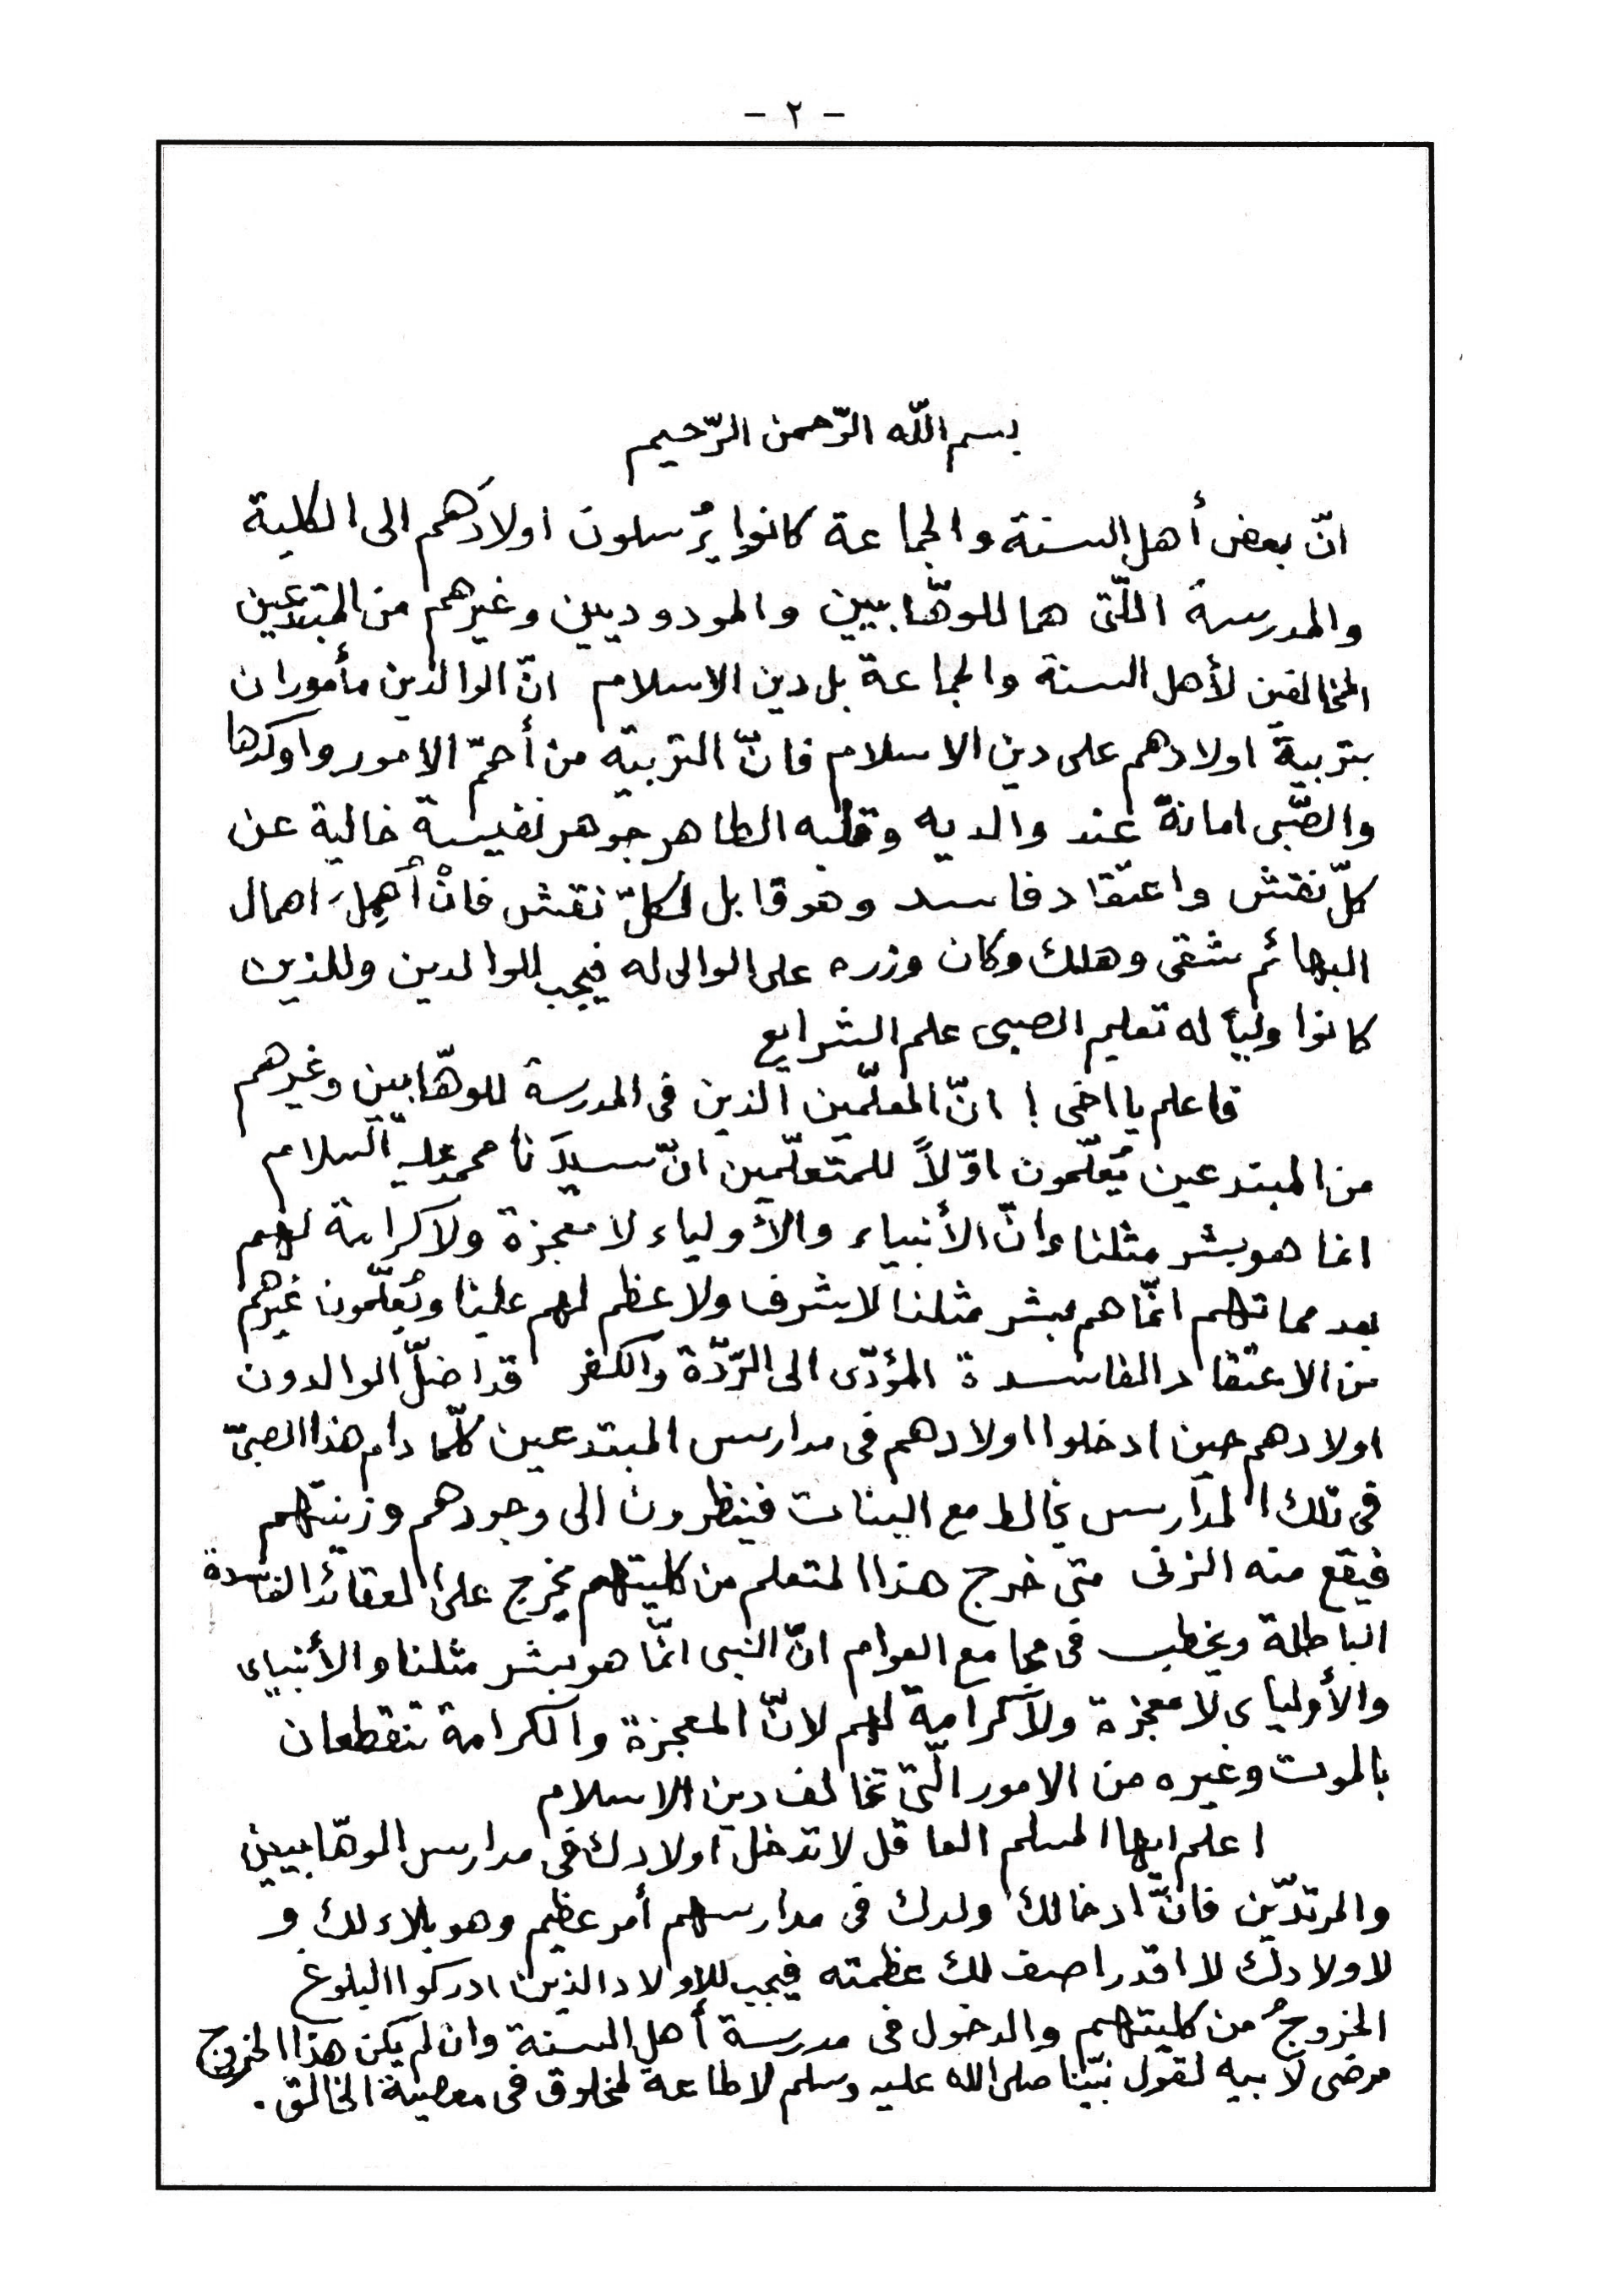 - ٢ -
بسم الله الرّحمن الرّحيم
انّ بعض أهل السنة والجماعة كانوا يُرسلون اولادَهم الى الكلية
والمدرسة اللّتى هما للوهّابيين والمودوديين وغيرهم من المبتدعين
المخالفين لأهل السنة والجماعة بل دين الاسلام انّ الوالدين مأموران
بتربية اولادهم على دين الاسلام فانّ التربية من أهمّ الامور واوكدها
والصّبى امانة عند والديه وقلبه الطاهر جوهر نفيسة خالية عن
كلّ نقش واعتقاد فاسد وهو قابل لكلّ نقش فانْ أُهمِل اهمال
البهائم شقى وهلك وكان وزره على الوالى له فيجب للوالدين وللذين
كانوا ولياً له تعليم الصبى علم الشرايع
فاعلم يا اخى ! انّ المعلّمين الذين فى المدرسة للوهّابيين وغيرهم
من المبتدعين يُعلّمون اوّلاً للمتعلّمين انّ سيدَنا محمد عليه السلام
انما هو بشر مثلنا وانّ الأنبياء والأولياء لا معجزة ولا كرامة لهم
بعد مماتهم انّما هم بشر مثلنا لا شرف ولا عظم لهم علينا ويُعلّمون غيرهم
من الاعتقاد الفاسدة المؤدّى الى الرّدّة والكفر قد اضلّ الوالدون
اولادهم حين ادخلوا اولادهم فى مدارس المبتدعين كلّما دام هذا الصبىّ
فى تلك المدارس يخالط مع البنات فينظرون الى وجودهم وزينتهم
فيقع منه الزنى متى خرج هذا المتعلم من كليتهم يخرج على العقائد الفاسدة
الباطلة ويخطب فى مجامع العوام انّ النبى انّما هو بشر مثلنا والأنبياى
والأولياى لا معجزة ولا كرامة لهم لانّ المعجزة والكرامة تنقطعان
بالموت وغيره من الامور الّتى تخالف دين الاسلام
اعلم ايها المسلم العاقل لا تدخل اولادك فى مدارس الوهّابيين
والمرتدّين فانّ ادخالك ولدك فى مدارسهم أمر عظيم وهو بلاء لك و
لاولادك لا اقدر اصف لك عظمته فيجب للاولاد الذين ادركوا البلوغ
الخروجُ من كليتهم والدخول فى مدرسة أهل السنة وان لم يكن هذا الخروج
مرضى لابيه لقول نبيّنا صلى الله عليه وسلم لا طاعة لمخلوق فى معصية الخالق .